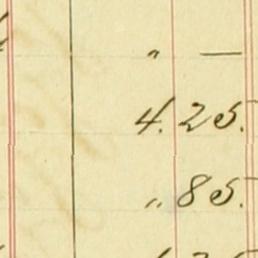 " —
4.25.
"85.